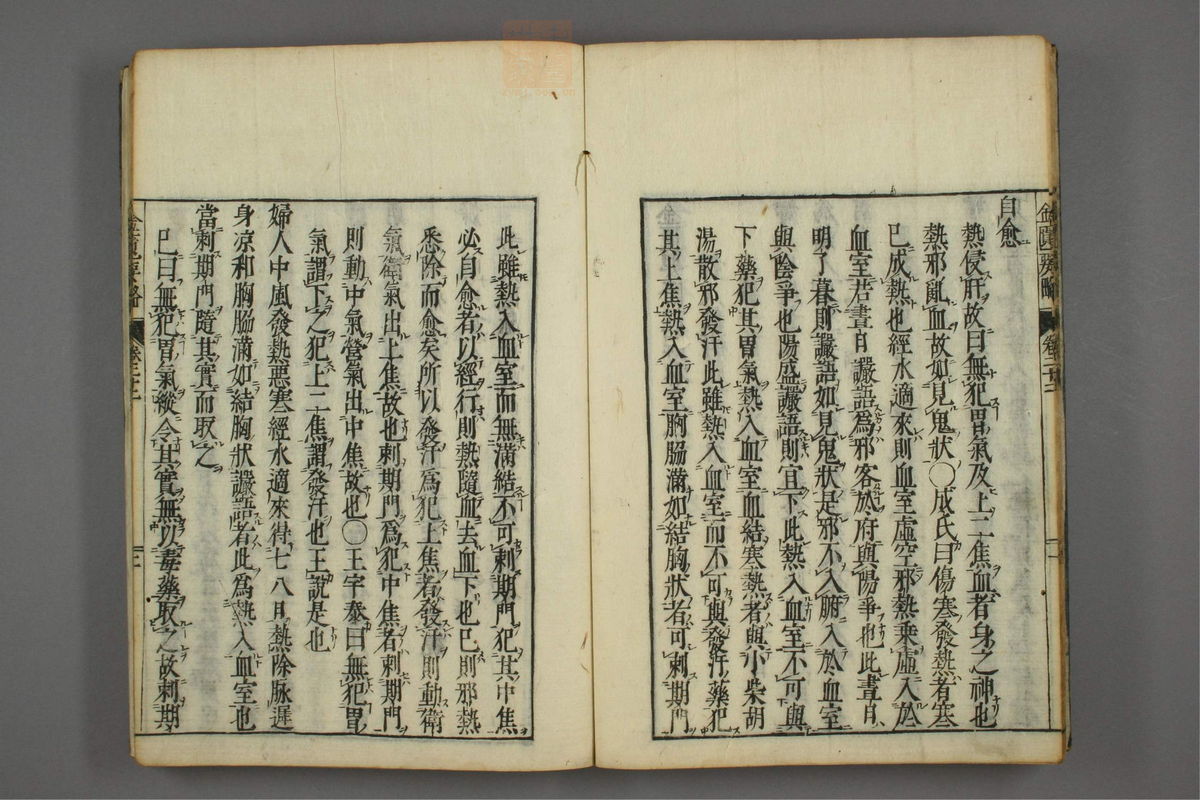 金匱要略
自愈
熱侵肝故曰無犯胃氣及上二焦血者身之神也
熱邪亂血故如見鬼狀○成氏曰傷寒發熱者寒
已成熱也經水適來則血室虛空邪熱乘虛入於
血室若晝日讝語爲邪客於府與陽爭也此晝日
明了暮則讝語如見鬼狀是邪不入腑入於血室
與陰爭也陽盛讝語則宜下此熱入血室不可與
下藥犯其胃氣熱入血室血結寒熱者與小柴胡
湯散邪發汗此雖熱入血室而不可與發汗藥犯
其上焦熱入血室胸脇滿如結胸狀者可刺期門
此雖熱入血室而無滿結不可刺期門犯其中焦
必自愈者以經行則熱隨血去血下也已則邪熱
悉除而愈矣所以發汗爲犯上焦者發汗則動衛
氣衛氣出上焦故也刺期門爲犯中焦者刺期門
則動中氣營氣出中焦故也○王宇泰曰無犯胃
氣謂下之犯上二焦謂發汗也王說是也
婦人中風發熱惡寒經水適來得七八日熱除脉遲
身涼和胸脇滿如結胸狀讝語者此爲熱入血室也
當刺期門隨其實而取之
已曰無犯胃氣縱令其實無以毒藥取之故刺期